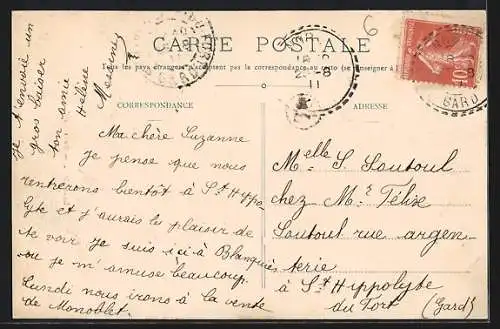 6
CARTE POSTALE
Tous les pays étrangers n'acceptent pas la correspondance au recto (se renseigner à
CORRESPONDANCE
ADRESSE
Ma chère Suzanne
je pense que nous
rentrerons bientôt à St Hippo-
lyte et j'aurais le plaisir de
te voir je suis ici à Blanquiès
ou je m'amuse beaucoup.
Lundi nous irons à la vente
de Monoblet.
Je t'envoie un
gros baiser
ton amie
Hélène
Mlle S. Soutoul
chez Mr Félix
Soutoul rue argen
terie
à St Hippolyte
du Fort (Gard)
10
GARD